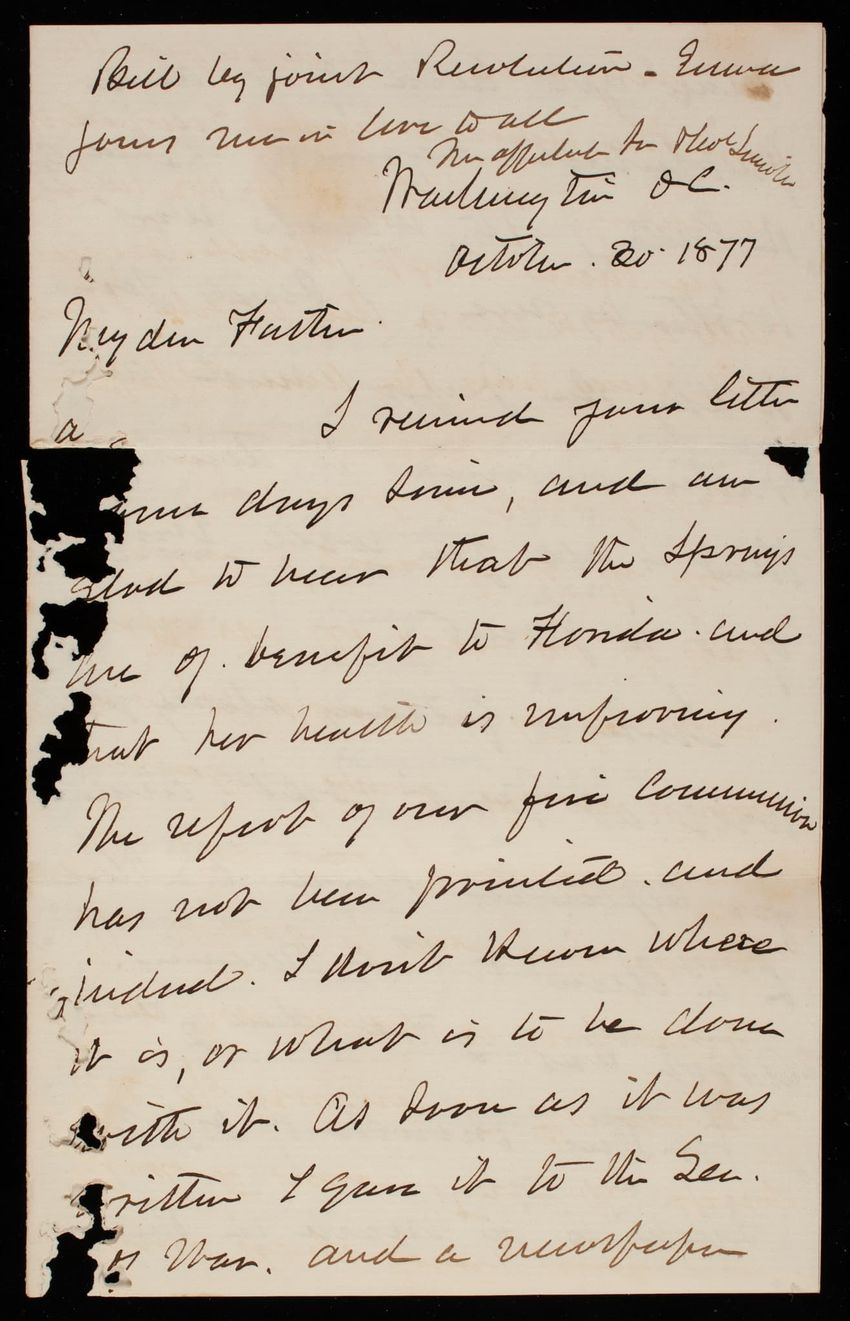 Bill by joint Resolution - Emma
joins me in love to all
Yr affectnt Son Thos Lincoln
Washington DC.
October. 20. 1877
My dear Father.
I received your letter
a
some days since, and am
glad to hear that the Springs
are of. benefit to Florida. and
that her health is improving.
The report of our fire Commission
has not been printed. and
indeed. I don't know where
it is, or what is to be done
with it. As soon as it was
written I gave it to the Sec.
of War. and a newspaper